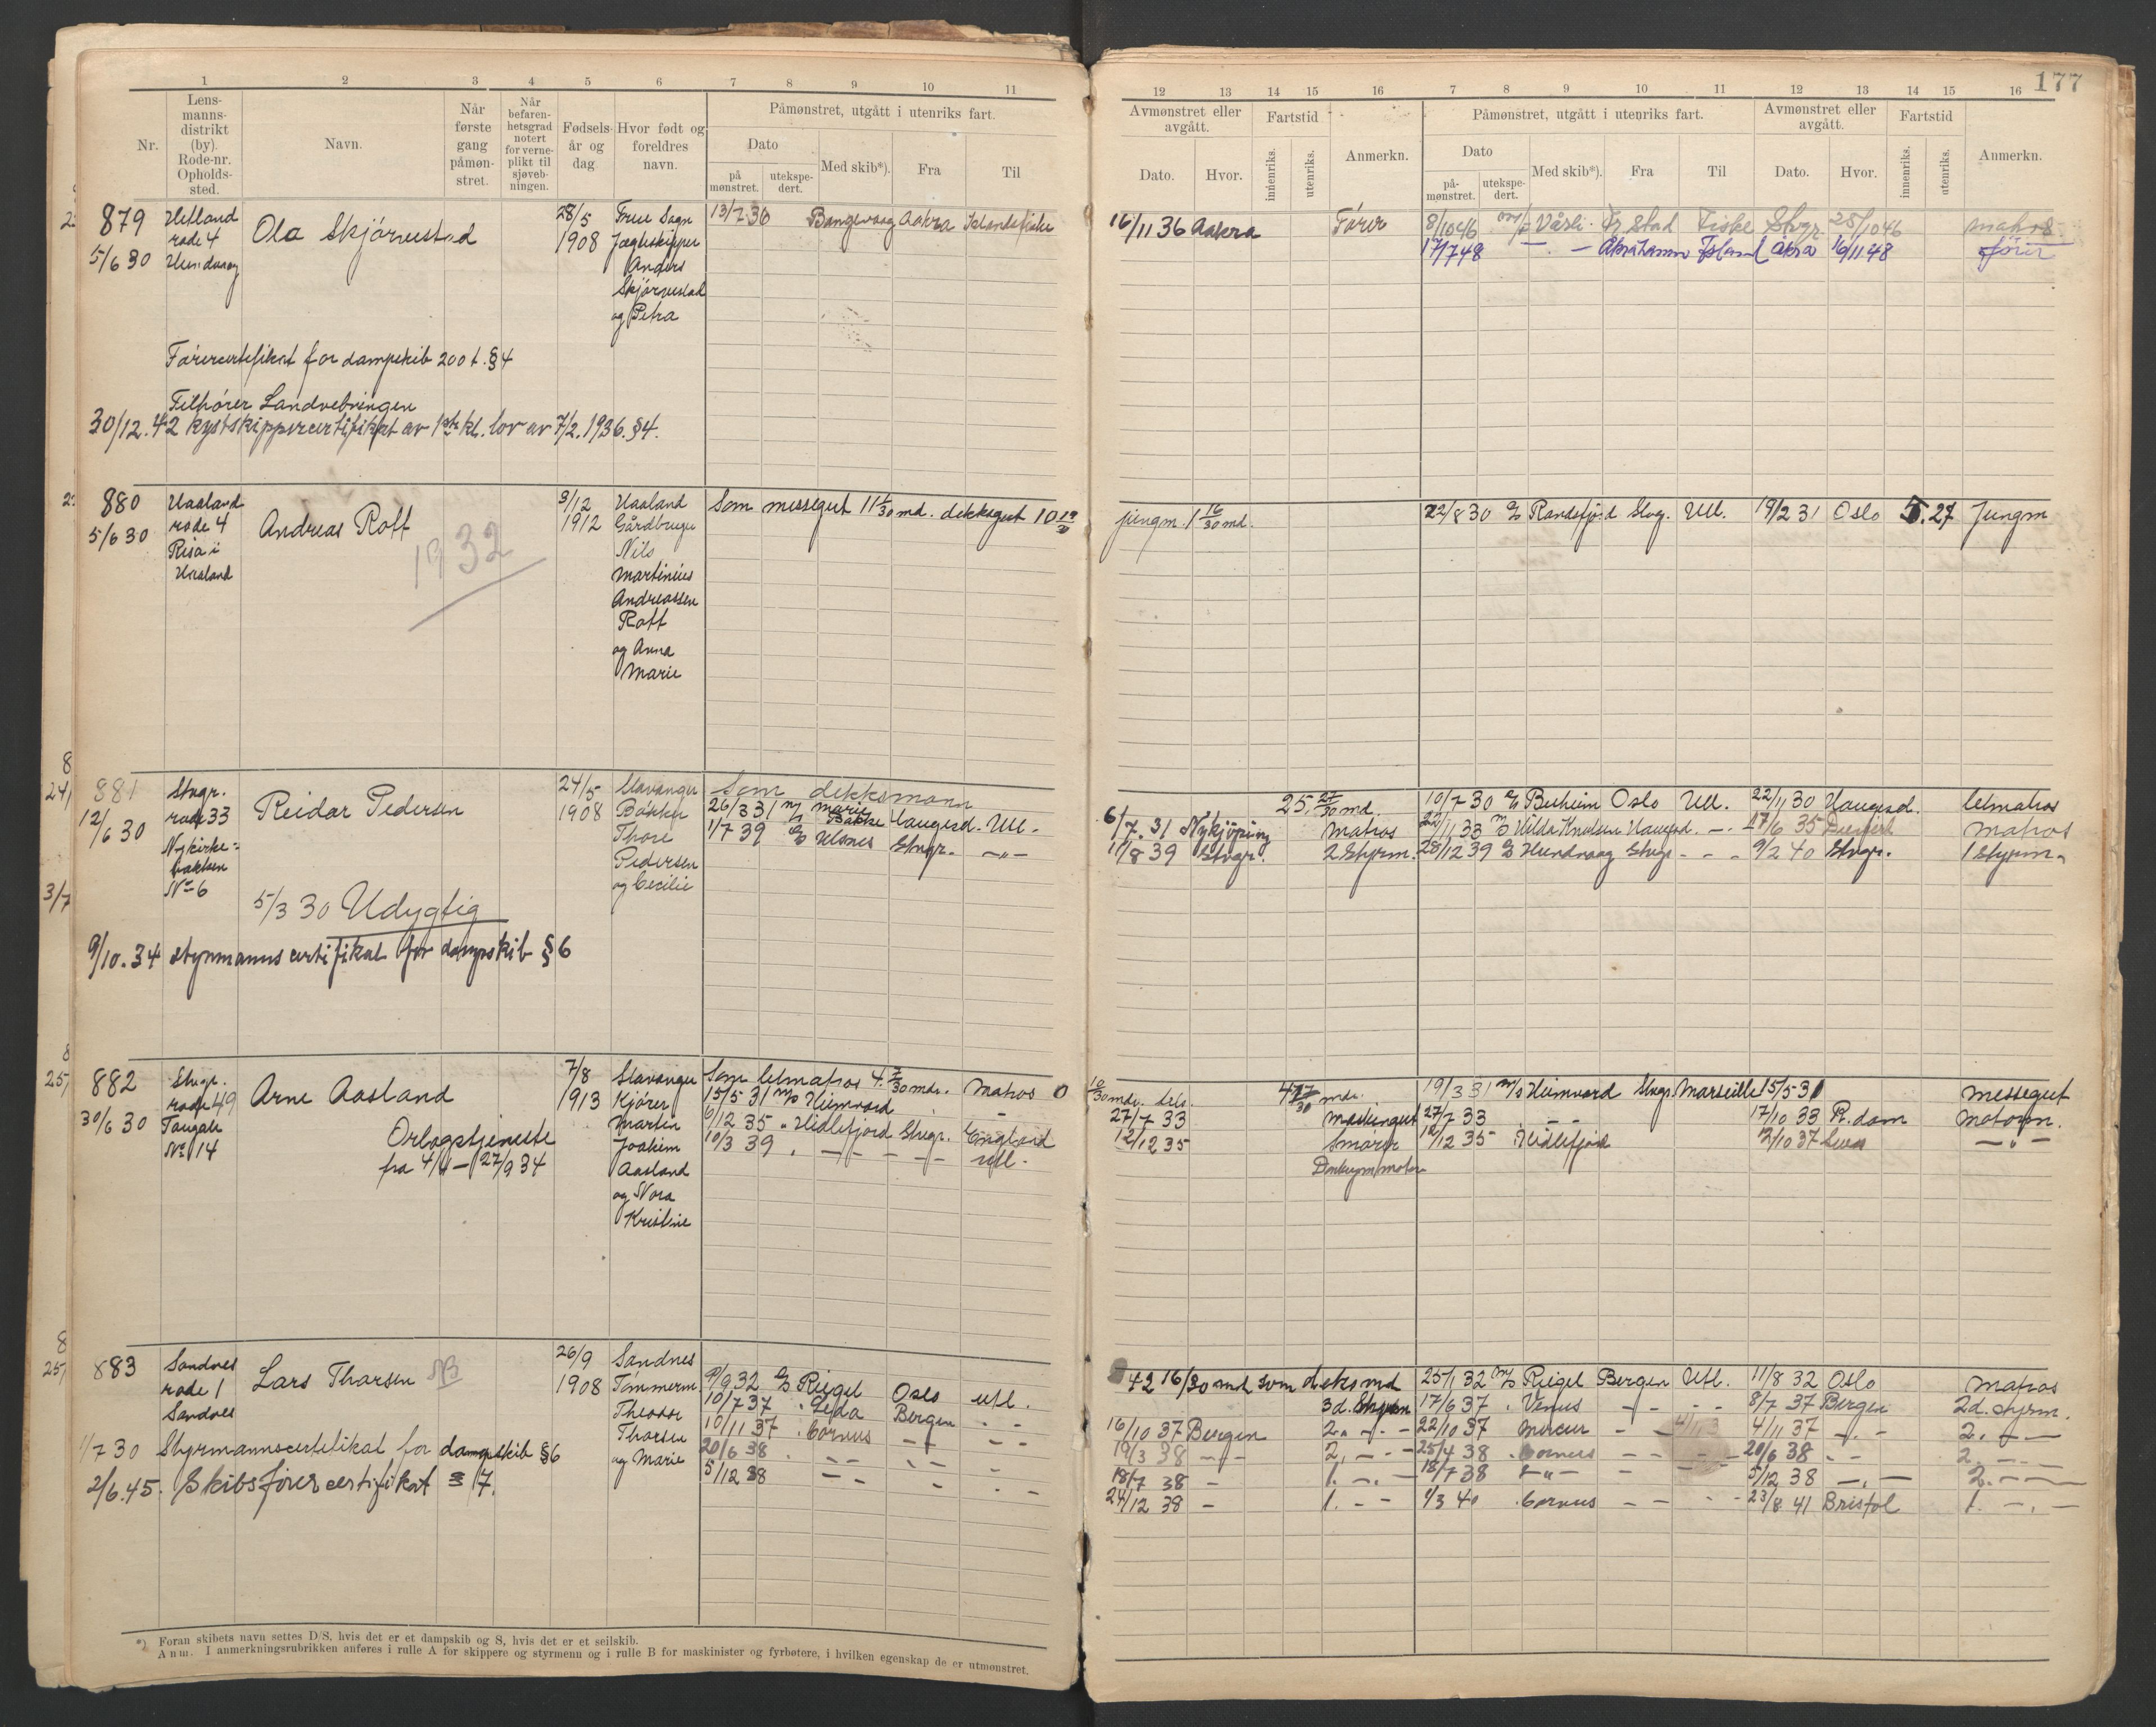 177
1 2 3 4 5 6 7 8 9 10 11
12 13 14 15 16 7 8 9 10 11 12 13 14 15 16
Nr.
Lens-
manns-
distrikt
(by).
Rode-nr.
Opholds-
sted.
Navn.
Når
første
gang
påmøn-
stret.
Når
befaren-
hetsgrad
notert
for verne-
plikt til
sjøveb-
ningen.
Fødsels-
år og
dag.
Hvor født og
foreldres
navn.
Påmønstret, utgått i utenriks fart.
Dato
på
mønstret.
utekspe-
dert.
Med skib*).
Fra
Til
Avmønstret eller
avgått.
Dato.
Hvor.
Fartstid
innenriks.
utenriks.
Anmerkn.
Påmønstret, utgått i utenriks fart.
Dato
på-
mønstret.
utekspe-
dert.
Med skib*).
Fra
Til
Avmønstret eller
avgått.
Dato.
Hvor.
Fartstid
innenriks.
utenriks.
Anmerkn.
879
5/6 30
Hetland
rode 4
Hundvaag
Ola Skjørnestad
28/5
1908
Frue Sogn
Jægtskipper
Anders
Skjørnestad
og Petra
13/7 36 Bangsvaag Aakra Islandsfiske
16/11 36 Aakra Fører
8/10 46 Vårli Stad Fiske Stvgr. 25/10 46 matros
17/7 48 Island Åkra 16/11 48 fører
Førercertefikat for dampskib 200 t. § 4
Tilhører Landvebningen
30/12.42 kystskippercertifikat av 1ste kl. lov av 7/2.1936. §4.
880
5/6 30
Haaland
rode 4
Risa i
Haaland
Andreas Rott
1932
3/12
1912
Haaland
Gårdbruger
Nils
Martinius
Andreassen
Rott
og Anna
Marie
Som messegut 11 1/30 md. dekksgut 10
jungm. 1 16/30 md.
22/8 30 Randsfjord Stvg. Utl. 19/2 31 Oslo 5.27 Jungm
881
12/6 30
Stvgr.
rode 33
Nykirke-
bakken
No 6
Reidar Pedersen
24/5
1908
Stavanger
Bøkker
Thore
Pedersen
og Cecilie
Som dekksmann
25 27/30 md
26/3 31 M/ Marie Bakke Haugesd. Utl.
6/7.31 Nykjøping Matros
1/7 39 Ulsnes Stvgr. —"—
11/8 39 Stvgr. 2 Styrm.
10/7 30 Oslo Utl. 22/11 30 Haugesd. letmatros
22/11 33 Hilda Knudsen Haugesd. — 17/6 35 Matros
28/12 39 Hundvaag Stvgr - - - 9/2 40 Stvgr. 1 Styrm.
5/3 30 Udygtig
9/10.34 styrmannscertifikat for dampskib § 6
882
30/6 30
Stvgr.
rode 49
Taugale
No 14
Arne Aasland
Orlogstjeneste
fra 4/4 – 27/9 34
7/8
1913
Stavanger
Kjører
Martin
Joakim
Aasland
og Nora
Kristine
Som letmatros 4. 2/30 mdr. Matros 0
10/30 mdr.
15/5 31 M/S Heimvard
27/7 33 maskingut
6/12 35 " Hidlefjord Stvgr. England
12/12 35 Smører
10/3 39 . — — — — Utl.
19/3 31 M/S Heimvard Stvgr. Marseille 15/5 31 messegut
27/7 33 — — 17/10 33 R.dam motorm.
12/12 35 Hidlefjord 2/10 37 — " —
883
Sandnes
rode 1
Sandnes
Lars Tharsen NB
26/9
1908
Sandnes
Tømmerm
Theodor
Tharsen
og Marie
9/9 32 Riegel Oslo utl.
10/7 37 . Leda Bergen - -
10/11 37 . Cornus — " — - -
20/6 38 . - - - - -
5/12 38 - - - - -
42 16/30 md som deks md
3d. Styrm
16/10 37 Bergen 2. - -
19/3 38 — " — 2. - -
18/7 38 - 1. - -
24/12 38 - 1. - -
25/1 32 M/S Riegel Bergen Utl. 11/8 32 Oslo Matros
17/6 37 . Venus — - - - 8/7 37 Bergen 2d. styrm.
22/10 37 Mercur - - 4/11 37 - - 2. - -
25/4 38 . Cornus — - - - 20/6 38 - - 2. - -
18/7 38 — " — - - - 5/12 38 - - 2. - -
1/3 40 . Cornus — — - - 23/8 41 Bristol 1. - -
1/7 30 Styrmannscertefikat for dampskib § 6
2/6.45. Skibsførercertifikat § 7.
*) Foran skibets navn settes D/S, hvis det er et dampskib og S, hvis det er et seilskib.
Anm. I anmerkningsrubrikken anføres i rulle A for skippere og styrmenn og i rulle B for maskinister og fyrbøtere, i hvilken egenskap de er utmønstret.